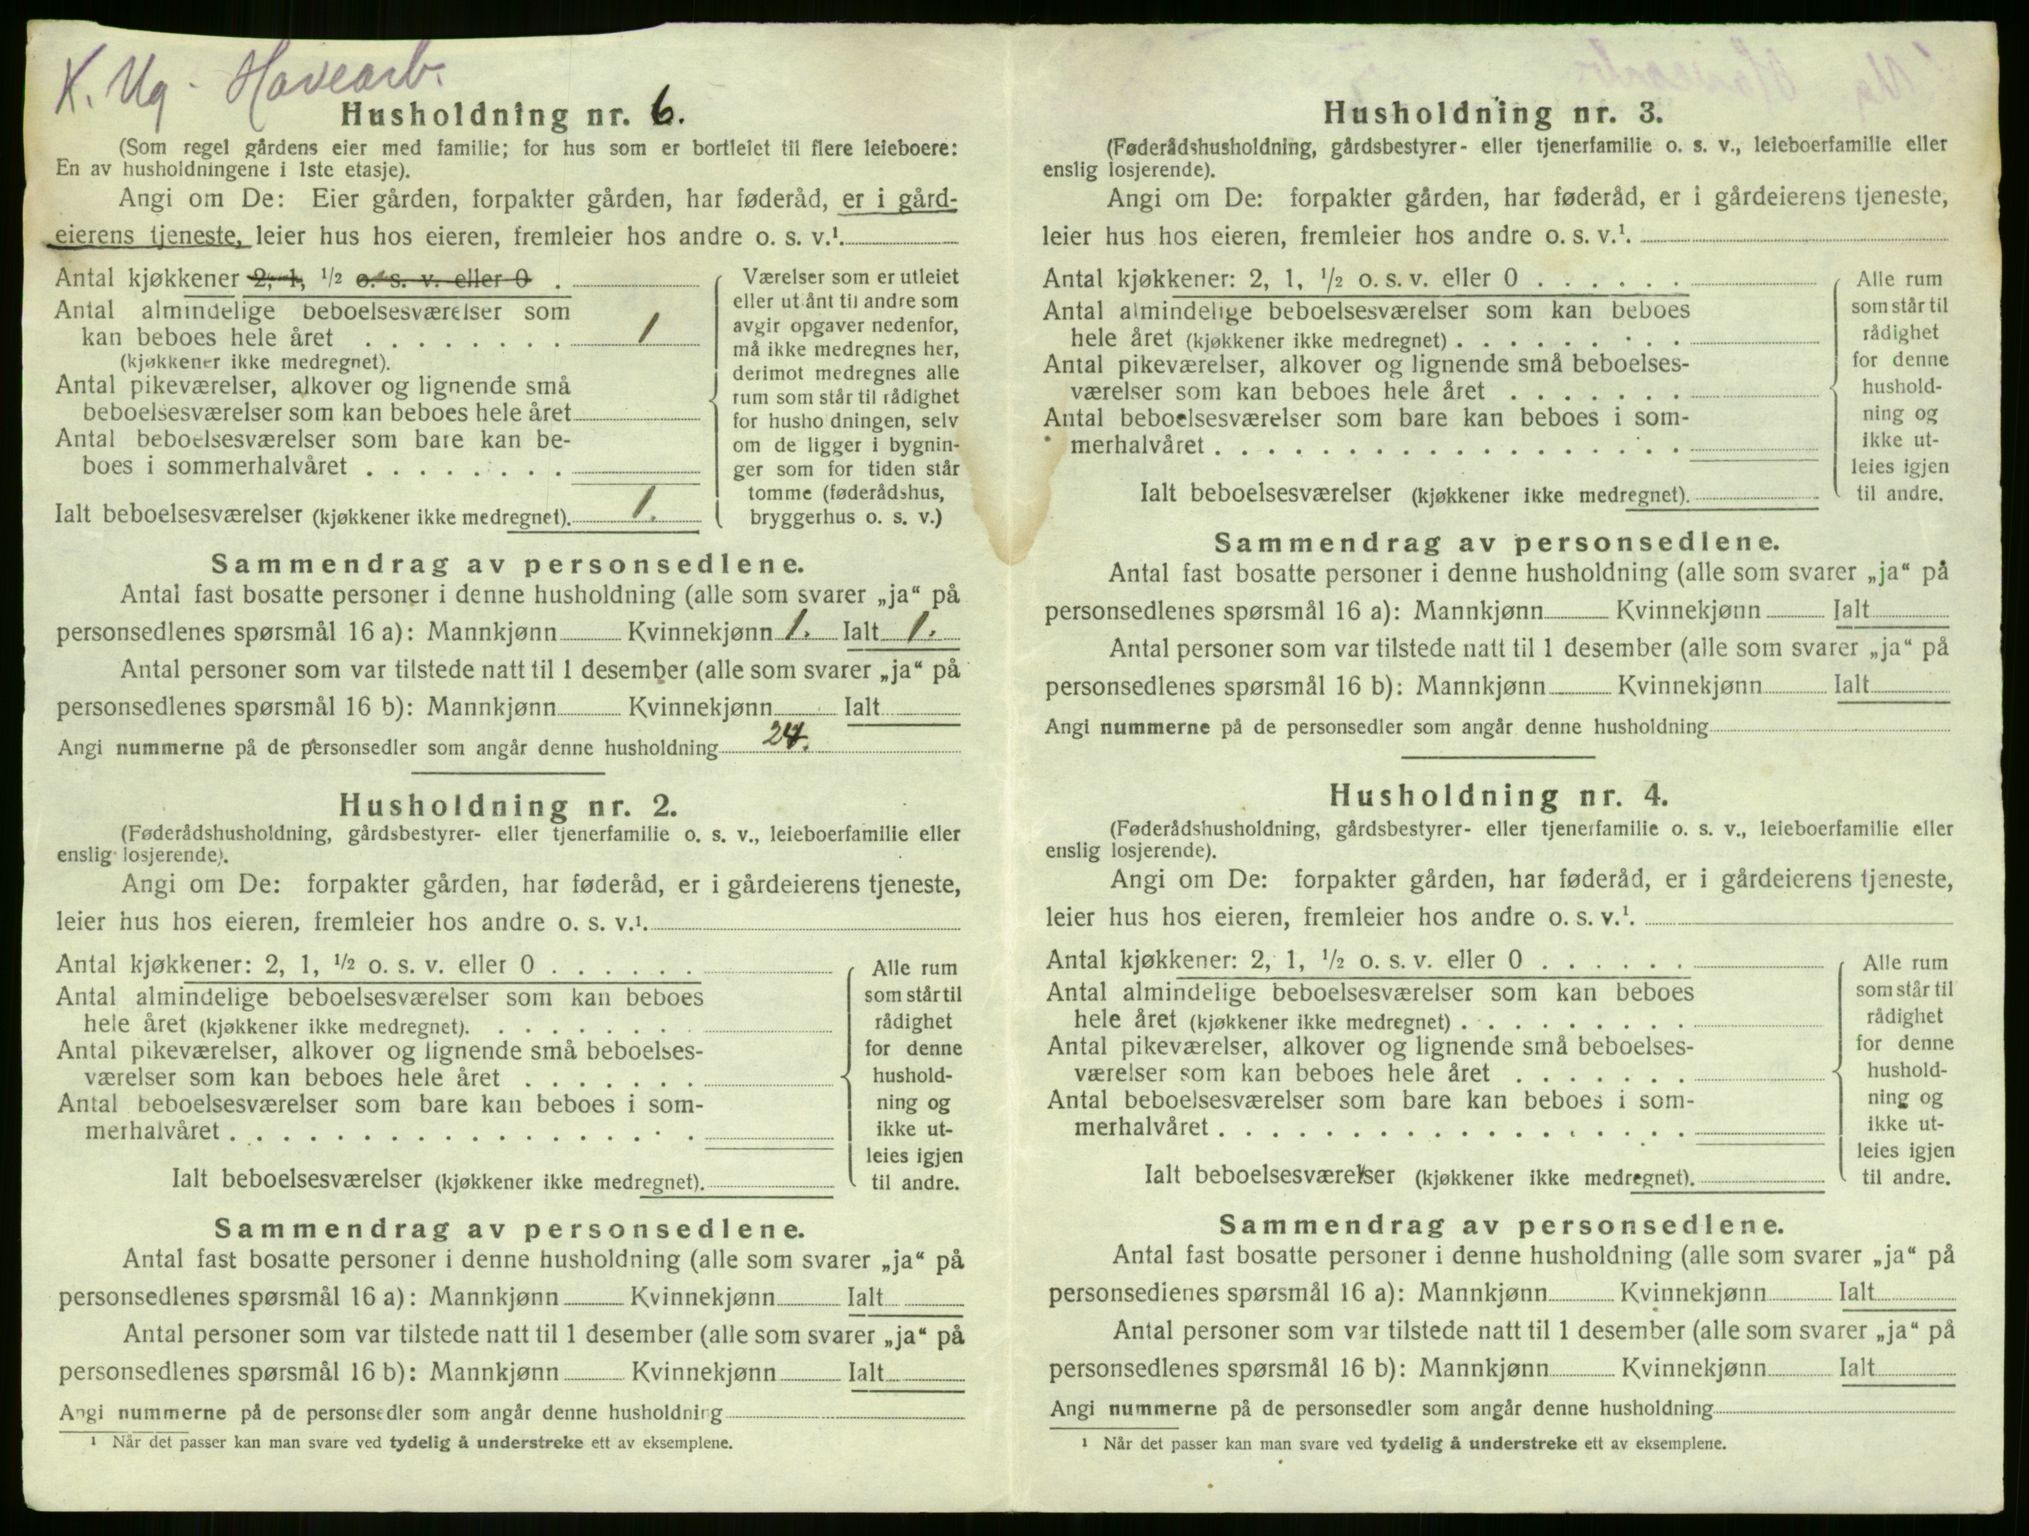 K. Ug - Havearb.
Husholdning nr. 6.
(Som regel gårdens eier med familie; for hus som er bortleiet til flere leieboere:
En av husholdningene i 1ste etasje).
Angi om De: Eier gården, forpakter gården, har føderåd, er i gård-
eierens tjeneste, leier hus hos eieren, fremleier hos andre o. s. v.¹.
Antal kjøkkener 2, 1, ½ o. s. v. eller 0 .
Antal almindelige beboelsesværelser som
kan beboes hele året . . . . . . . . 1
(kjøkkener ikke medregnet).
Antal pikeværelser, alkover og lignende små
beboelsesværelser som kan beboes hele året
Antal beboelsesværelser som bare kan be-
boes i sommerhalvåret . . . . . . . .
Ialt beboelsesværelser (kjøkkener ikke medregnet). 1.
Værelser som er utleiet
eller ut ånt til andre som
avgir opgaver nedenfor,
må ikke medregnes her,
derimot medregnes alle
rum som står til rådighet
for husho dningen, selv
om de ligger i bygnin-
ger som for tiden står
tomme (føderådshus,
bryggerhus o. s. v.)
Sammendrag av personsedlene.
Antal fast bosatte personer i denne husholdning (alle som svarer „ja“ på
personsedlenes spørsmål 16 a): Mannkjønn Kvinnekjønn 1. Ialt 1.
Antal personer som var tilstede natt til 1 desember (alle som svarer „ja“ på
personsedlenes spørsmål 16 b): Mannkjønn Kvinnekjønn Ialt
Angi nummerne på de personsedler som angår denne husholdning 24.
Husholdning nr. 2.
(Føderådshusholdning, gårdsbestyrer- eller tjenerfamilie o. s. v., leieboerfamilie eller
enslig losjerende).
Angi om De: forpakter gården, har føderåd, er i gårdeierens tjeneste,
leier hus hos eieren, fremleier hos andre o. s. v.¹.
Antal kjøkkener: 2, 1, ½ o. s. v. eller 0 . . . . . .
Antal almindelige beboelsesværelser som kan beboes
hele året (kjøkkener ikke medregnet). . . . . . . . .
Antal pikeværelser, alkover og lignende små beboelses-
værelser som kan beboes hele året . . . . . . .
Antal beboelsesværelser som bare kan beboes i som-
merhalvåret . . . . . . . . . . . . . . . . . .
Ialt beboelsesværelser (kjøkkener ikke medregnet).
Alle rum
som står til
rådighet
for denne
hushold-
ning og
ikke ut-
leies igjen
til andre.
Sammendrag av personsedlene.
Antal fast bosatte personer i denne husholdning (alle som svarer „ja“ på
personsedlenes spørsmål 16 a): Mannkjønn Kvinnekjønn Ialt
Antal personer som var tilstede natt til 1 desember (alle som svarer „ja“ på
personsedlenes spørsmål 16 b): Mannkjønn Kvinnekjønn Ialt
Angi nummerne på de personsedler som angår denne husholdning
¹ Når det passer kan man svare ved tydelig å understreke ett av eksemplene.
Husholdning nr. 3.
(Føderådshusholdning, gårdsbestyrer- eller tjenerfamilie o. s. v., leieboerfamilie eller
enslig losjerende).
Angi om De: forpakter gården, har føderåd, er i gårdeierens tjeneste,
leier hus hos eieren, fremleier hos andre o. s. v.¹.
Antal kjøkkener: 2, 1, ½ o. s. v. eller 0 . . . . . .
Antal almindelige beboelsesværelser som kan beboes
hele året (kjøkkener ikke medregnet) . . . . . . . . .
Antal pikeværelser, alkover og lignende små beboelses-
værelser som kan beboes hele året . . . . . . .
Antal beboelsesværelser som bare kan beboes i som-
merhalvåret . . . . . . . . . . . . . . . . . .
Ialt beboelsesværelser (kjøkkener ikke medregnet).
Alle rum
som står til
rådighet
for denne
hushold-
ning og
ikke ut-
leies igjen
til andre.
Sammendrag av personsedlene.
Antal fast bosatte personer i denne husholdning (alle som svarer „ja“ på
personsedlenes spørsmål 16 a): Mannkjønn Kvinnekjønn Ialt
Antal personer som var tilstede natt til 1 desember (alle som svarer „ja“ på
personsedlenes spørsmål 16 b): Mannkjønn Kvinnekjønn Ialt
Angi nummerne på de personsedler som angår denne husholdning
Husholdning nr. 4.
(Føderådshusholdning, gårdsbestyrer- eller tjenerfamilie o. s. v., leieboerfamilie eller
enslig losjerende).
Angi om De: forpakter gården, har føderåd, er i gårdeierens tjeneste,
leier hus hos eieren, fremleier hos andre o. s. v.¹.
Antal kjøkkener: 2, 1, ½ o. s. v. eller 0 . . . . . .
Antal almindelige beboelsesværelser som kan beboes
hele året (kjøkkener ikke medregnet) . . . . . . . . .
Antal pikeværelser, alkover og lignende små beboelses-
værelser som kan beboes hele året . . . . . . .
Antal beboelsesværelser som bare kan beboes i som-
merhalvåret . . . . . . . . . . . . . . . . . .
Ialt beboelsesværelser (kjøkkener ikke medregnet).
Alle rum
som står til
rådighet
for denne
hushold-
ning og
ikke ut-
leies igjen
til andre.
Sammendrag av personsedlene.
Antal fast bosatte personer i denne husholdning (alle som svarer „ja“ på
personsedlenes spørsmål 16 a): Mannkjønn Kvinnekjønn Ialt
Antal personer som var tilstede natt til 1 desember (alle som svarer „ja“ på
personsedlenes spørsmål 16 b): Mannkjønn Kvinnekjønn Ialt
Angi nummerne på de personsedler som angår denne husholdning
¹ Når det passer kan man svare ved tydelig å understreke ett av eksemplene.